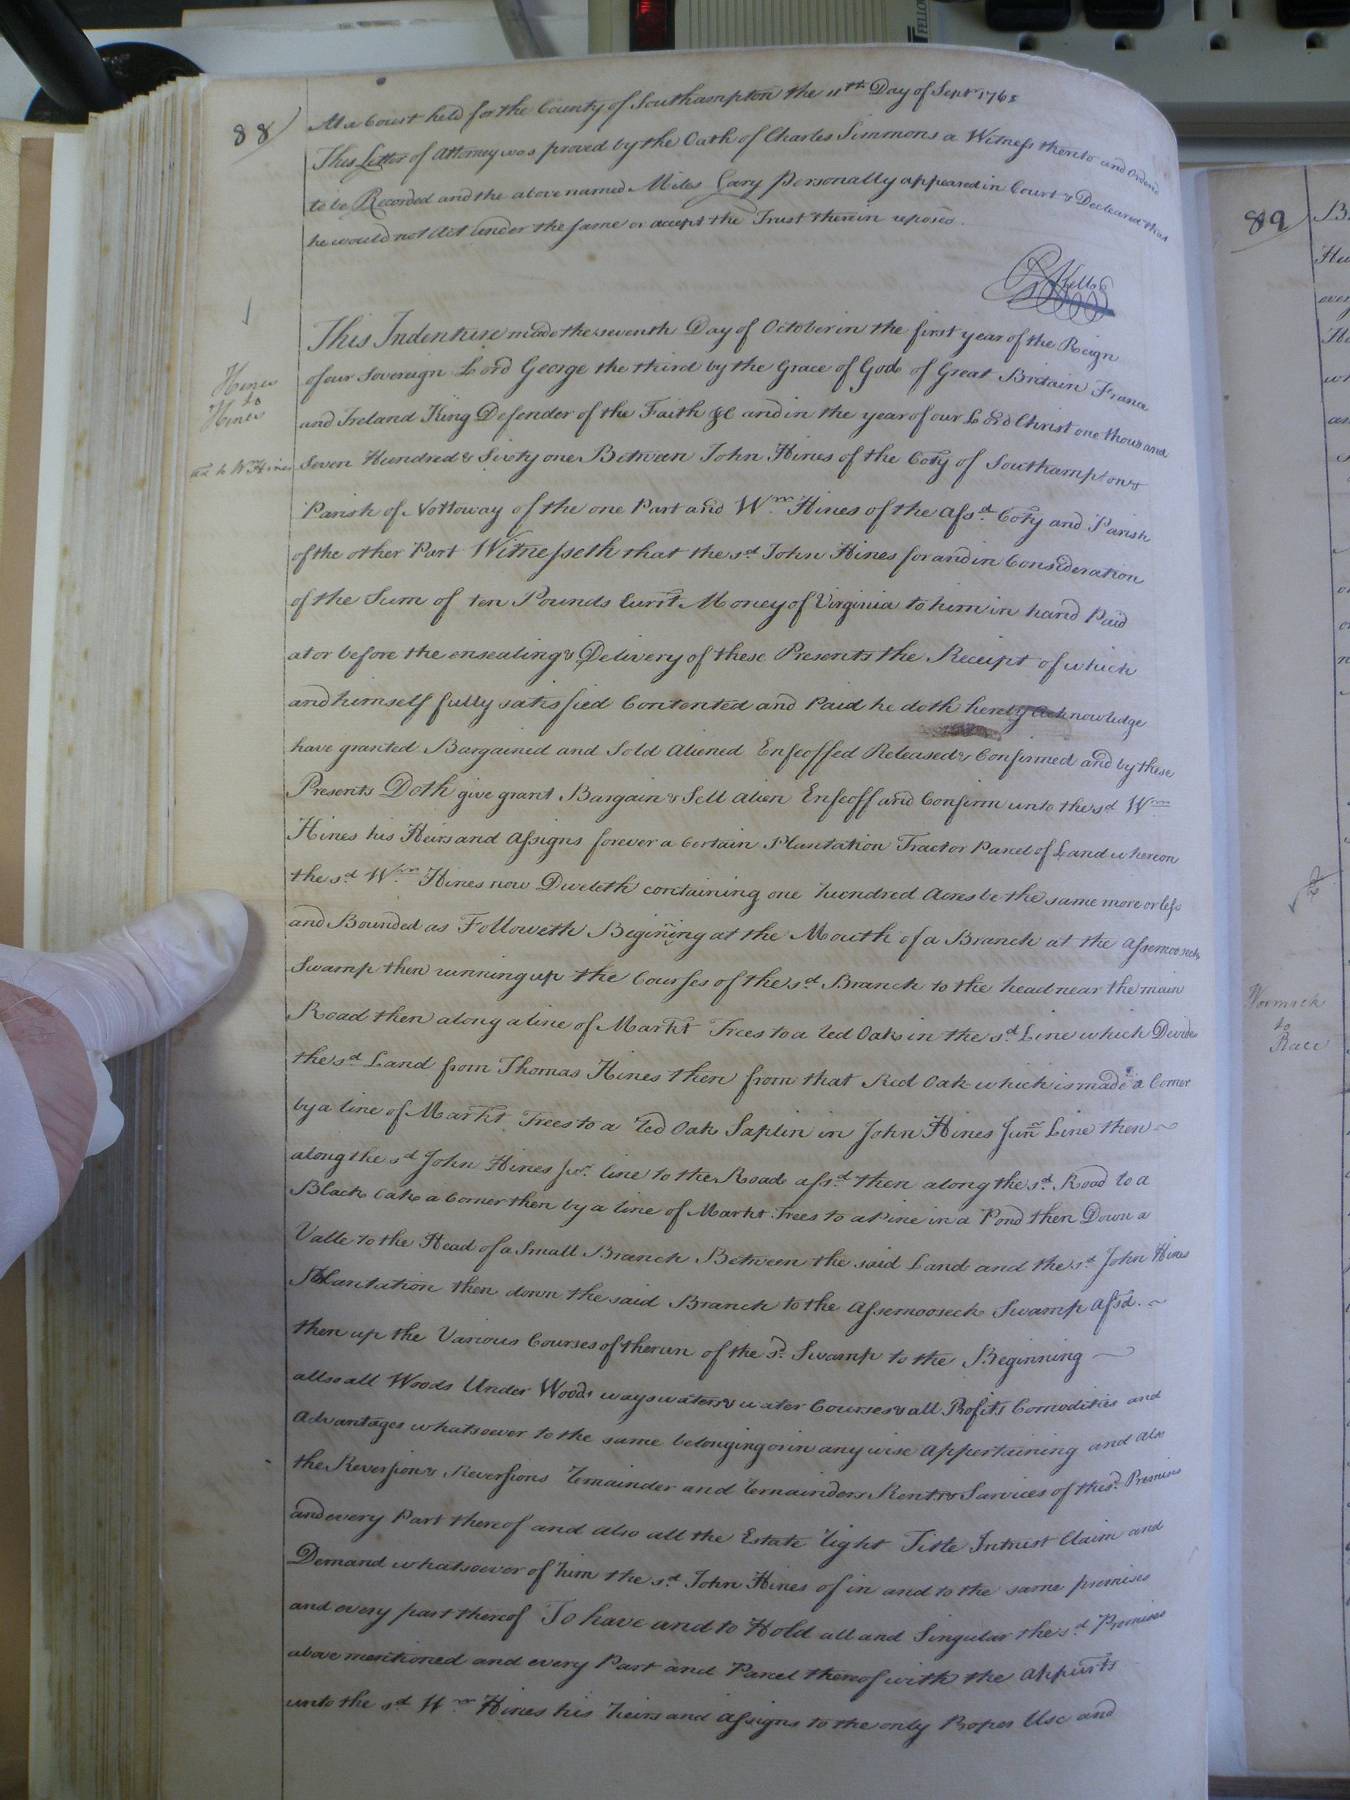 88
At a Court held for the County of Southampton the 11th Day of Sept 176
This Letter of Attorney was proved by the Oath of Charles Simmons a Witness thereto and Ordered
to be Recorded and the above named Miles Cary personally appeared in Court & Declared that
he would not Act under the same or accept the Trust therein reposed.
Hines
to
Hines
This Indenture made the seventh Day of October in the first year of the Reign
of our Sovereign Lord George the third by the Grace of God of Great Britain France
and Ireland King Defender of the Faith &c and in the year of our Lord Christ one thousand
Seven Hundred & Sixty one Between John Hines of the Coty of Southampton &
Parish of Nottoway of the one Part and Wm Hines of the afsd Coty and Parish
of the other Part Witnesseth that the sd John Hines for and in Consideration
of the Sum of ten Pounds Currt Money of Virginia to him in hand Paid
at or before the ensealing & Delivery of these Presents the Receipt of which
and himself fully satisfied Contented and Paid he doth hereby acknowledge
have granted Bargained and Sold Aliened Enfeoffed Released & Confirmed and by these
Presents Doth give grant Bargain & Sell Alien Enfeoff and Confirm unto the sd Wm
Hines his Heirs and Assigns forever a Certain Plantation Tract or Parcel of Land whereon
the sd Wm Hines now Dweleth containing one hundred Acres be the same more or less
and Bounded as Followeth Begining at the Mouth of a Branch at the Assemooseck
Swamp then running up the Courses of the sd Branch to the head near the main
Road then along a line of Markt Trees to a red Oak in the sd Line which Divides
the sd Land from Thomas Hines then from that Red Oak which is made a Corner
by a line of Markt Trees to a red Oak Saplin in John Hines Junr Line then
along the sd John Hines Jur line to the Road afsd then along the sd Road to a
Black Oak a Corner then by a line of Markt Trees to a Pine in a Pond then Down a
Valle to the Head of a Small Branch Between the said Land and the sd John Hines
Plantation then down the said Branch to the Assemooseck Swamp afsd
then up the Various Courses of the run of the sd Swamp to the Beginning
allso all Woods Under Woods ways waters & water Courses & all Profits Comodities and
Advantages whatsoever to the same belonging or in any wise Appertaining and Also
the Reversion & Reversions remainder and remainders Rents & Services of the sd Premises
and every Part thereof and also all the Estate right Title Intrest Claim and
Demand whatsoever of him the sd John Hines of in and to the same premises
and every part thereof To have and to Hold all and Singular the sd Premises
above mentioned and every Part and Parcel thereof with the Appurts
unto the sd Wm Hines his heirs and Assigns to the only Proper Use and
89
Wormack
to
Race